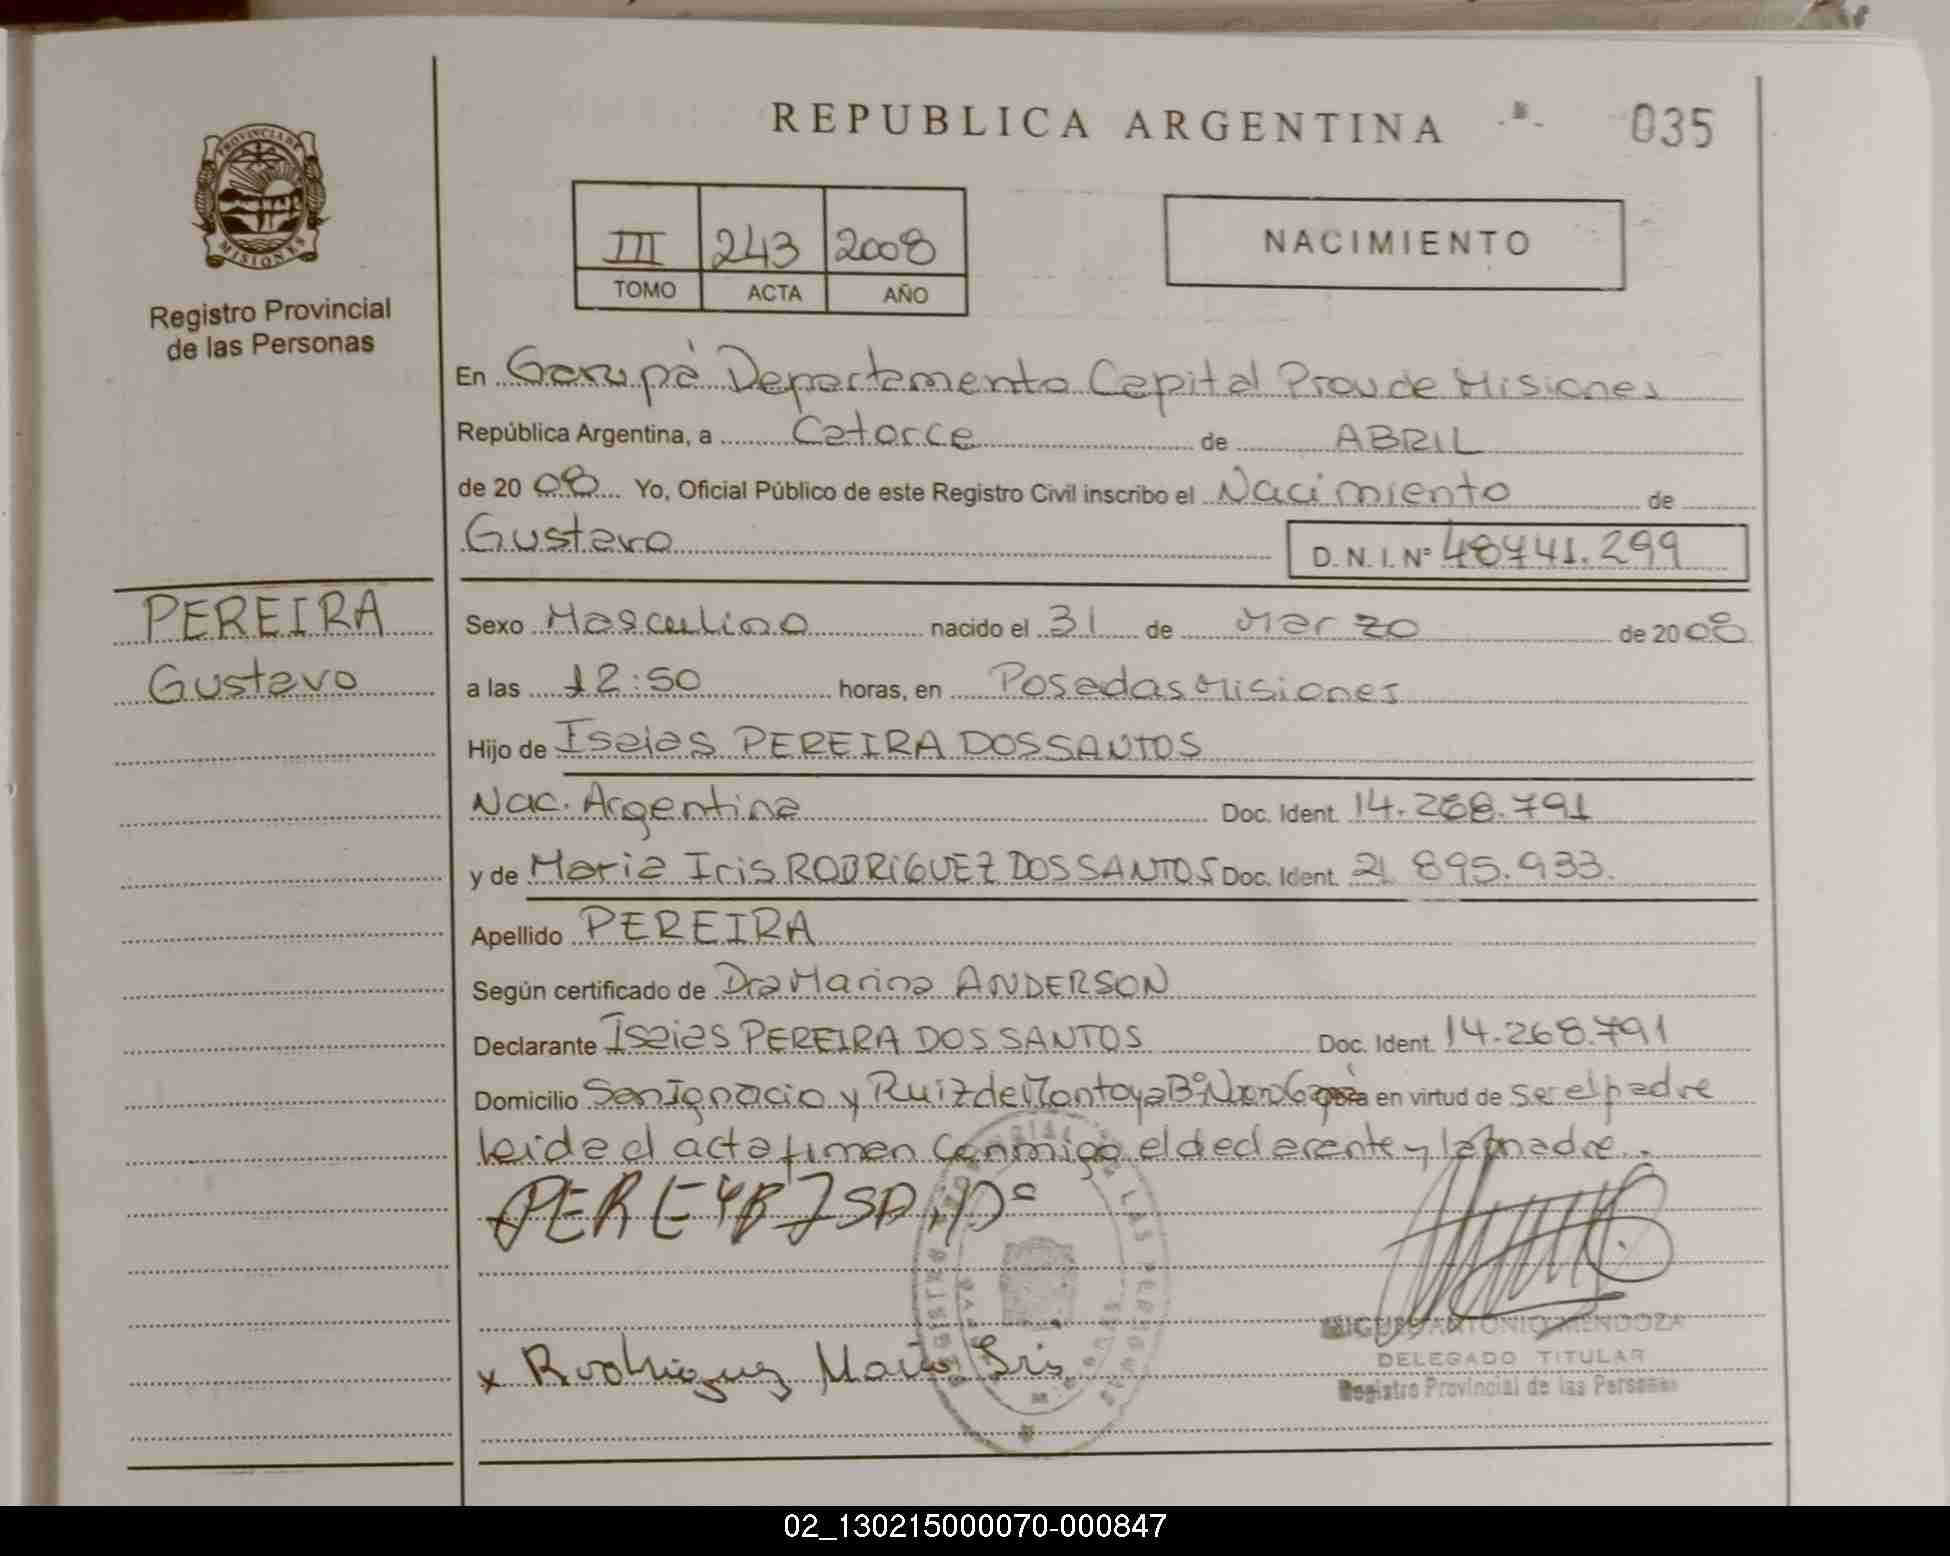 REPUBLICA ARGENTINA
035
PROVINCIA DE
MISIONES
Registro Provincial
de las Personas
III 243 2008
TOMO ACTA AÑO
NACIMIENTO
En Garupá Departamento Capital Prov de Misiones
República Argentina, a Catorce de ABRIL
de 20 08 Yo, Oficial Público de este Registro Civil inscribo el Nacimiento de
Gustavo D. N. I. Nº 48741.299
PEREIRA
Gustavo
Sexo Masculino nacido el 31 de Marzo de 20 08
a las 12:50 horas, en Posadas Misiones
Hijo de Isaias PEREIRA DOSSANTOS
Nac. Argentina Doc. Ident. 14.268.791
y de Maria Iris RODRIGUEZ DOS SANTOS Doc. Ident. 21 895.933.
Apellido PEREIRA
Según certificado de Dra Marina ANDERSON
Declarante Isaias PEREIRA DOS SANTOS Doc. Ident. 14.268.791
Domicilio San Ignacio y Ruiz de Montoya Bº en virtud de ser el padre
leida el acta firman conmigo el declarante y la madre.
x Rodriguez Maria Iris
MIGUEL ANTONIO MENDOZA
DELEGADO TITULAR
Registro Provincial de las Personas
02_130215000070-000847